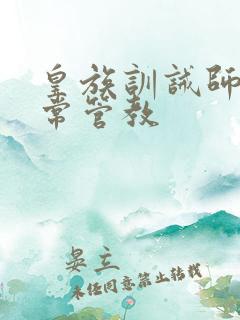 皇族訓誡師日
常管教
晏立
未经同意禁止转载